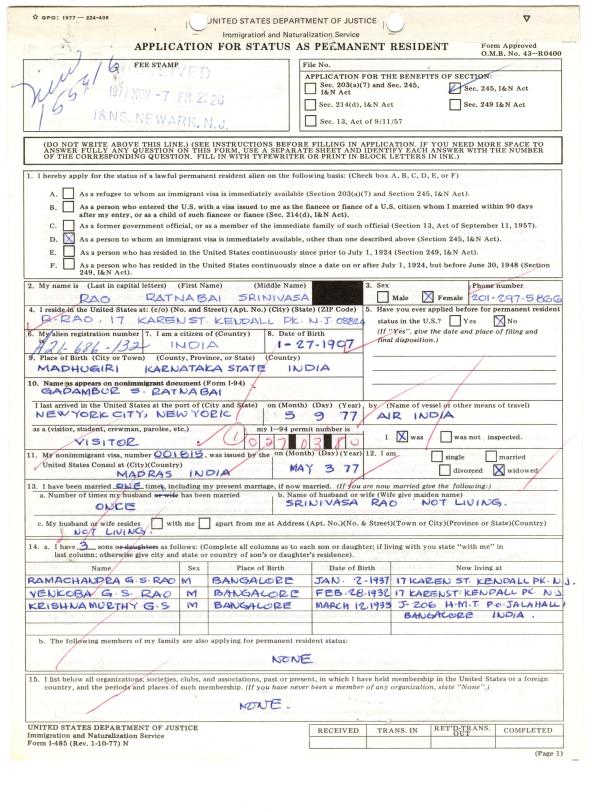 ☆ GPO: 1977 — 224-406
UNITED STATES DEPARTMENT OF JUSTICE
Immigration and Naturalization Service
APPLICATION FOR STATUS AS PERMANENT RESIDENT
Form Approved
O.M.B. No. 43-R0400
FEE STAMP
RECEIVED
1977 NOV -7 PM 2:20
I&NS, NEWARK, N.J.
File No.
APPLICATION FOR THE BENEFITS OF SECTION:
Sec. 203(a)(7) and Sec. 245, I&N Act
Sec. 245, I&N Act
Sec. 214(d), I&N Act
Sec. 249 I&N Act
Sec. 13, Act of 9/11/57
(DO NOT WRITE ABOVE THIS LINE.) (SEE INSTRUCTIONS BEFORE FILLING IN APPLICATION. IF YOU NEED MORE SPACE TO
ANSWER FULLY ANY QUESTION ON THIS FORM, USE A SEPARATE SHEET AND IDENTIFY EACH ANSWER WITH THE NUMBER
OF THE CORRESPONDING QUESTION. FILL IN WITH TYPEWRITER OR PRINT IN BLOCK LETTERS IN INK.)
1. I hereby apply for the status of a lawful permanent resident alien on the following basis: (Check box A, B, C, D, E, or F)
A. As a refugee to whom an immigrant visa is immediately available (Section 203(a)(7) and Section 245, I&N Act).
B. As a person who entered the U.S. with a visa issued to me as the fiancee or fiance of a U.S. citizen whom I married within 90 days
after my entry, or as a child of such fiancee or fiance (Sec. 214(d), I&N Act).
C. As a former government official, or as a member of the immediate family of such official (Section 13, Act of September 11, 1957).
D. X As a person to whom an immigrant visa is immediately available, other than one described above (Section 245, I&N Act).
E. As a person who has resided in the United States continuously since prior to July 1, 1924 (Section 249, I&N Act).
F. As a person who has resided in the United States continuously since a date on or after July 1, 1924, but before June 30, 1948 (Section
249, I&N Act).
2. My name is (Last in capital letters) (First Name) (Middle Name)
RAO RATNABAI SRINIVASA
3. Sex
Male X Female
Phone number
201-297-5866
4. I reside in the United States at: (c/o) (No. and Street) (Apt. No.) (City) (State) (ZIP Code)
R.RAO, 17 KAREN ST. KENDALL PK. N.J. 08824
5. Have you ever applied before for permanent resident
status in the U.S.? Yes X No
(If "Yes", give the date and place of filing and
final disposition.)
6. My alien registration number
A21-686-132
7. I am a citizen of (Country)
INDIA
8. Date of Birth
1-27-1907
9. Place of Birth (City or Town) (County, Province, or State) (Country)
MADHUGIRI KARNATAKA STATE INDIA
10. Name as appears on nonimmigrant document (Form I-94)
GADAMBUR S. RATNABAI
I last arrived in the United States at the port of (City and State)
NEWYORK CITY, NEWYORK
on (Month) (Day) (Year)
5 9 77
by (Name of vessel or other means of travel)
AIR INDIA
as a (visitor, student, crewman, parolee, etc.)
VISITOR
my I-94 permit number is
I X was was not inspected.
11. My nonimmigrant visa, number 001815, was issued by the
United States Consul at (City)(Country)
MADRAS INDIA
on (Month) (Day) (Year)
MAY 3 77
12. I am
single married
divorced X widowed
13. I have been married ONE times, including my present marriage, if now married. (If you are now married give the following:)
a. Number of times my husband or wife has been married
ONCE
b. Name of husband or wife (Wife give maiden name)
SRINIVASA RAO NOT LIVING.
c. My husband or wife resides with me apart from me at Address (Apt. No.)(No. & Street)(Town or City)(Province or State)(Country)
NOT LIVING.
14. a. I have 3 sons or daughters as follows: (Complete all columns as to each son or daughter; if living with you state "with me" in
last column; otherwise give city and state or country of son's or daughter's residence).
Name Sex Place of Birth Date of Birth Now living at
RAMACHANDRA G.S. RAO M BANGALORE JAN. 2-1937 17 KAREN ST. KENDALL PK. N.J.
VENKOBA G.S. RAO M BANGALORE FEB.28.1932 17 KAREN ST. KENDALL PK. N.J
KRISHNAMURTHY G.S M BANGALORE MARCH 12,1935 J-206 H.M.T P.O. JALAHALLI
BANGALORE INDIA.
b. The following members of my family are also applying for permanent resident status:
NONE
15. I list below all organizations, societies, clubs, and associations, past or present, in which I have held membership in the United States or a foreign
country, and the periods and places of such membership. (If you have never been a member of any organization, state "None".)
NONE.
UNITED STATES DEPARTMENT OF JUSTICE
Immigration and Naturalization Service
Form I-485 (Rev. 1-10-77) N
RECEIVED TRANS. IN RET'D-TRANS. OUT COMPLETED
(Page 1)